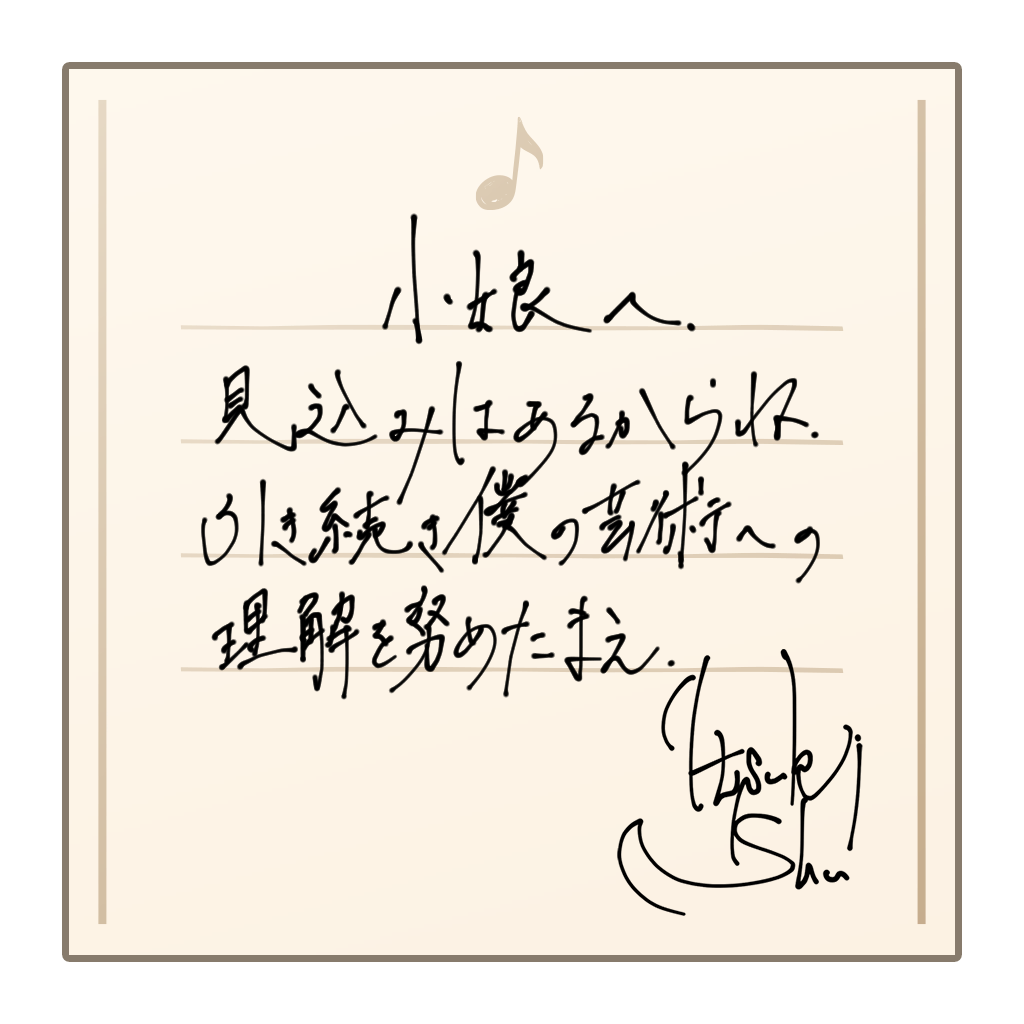 小娘へ.
見込みはあるからね.
引き続き僕の芸術への
理解を努めたまえ.
Itsuki
Shu